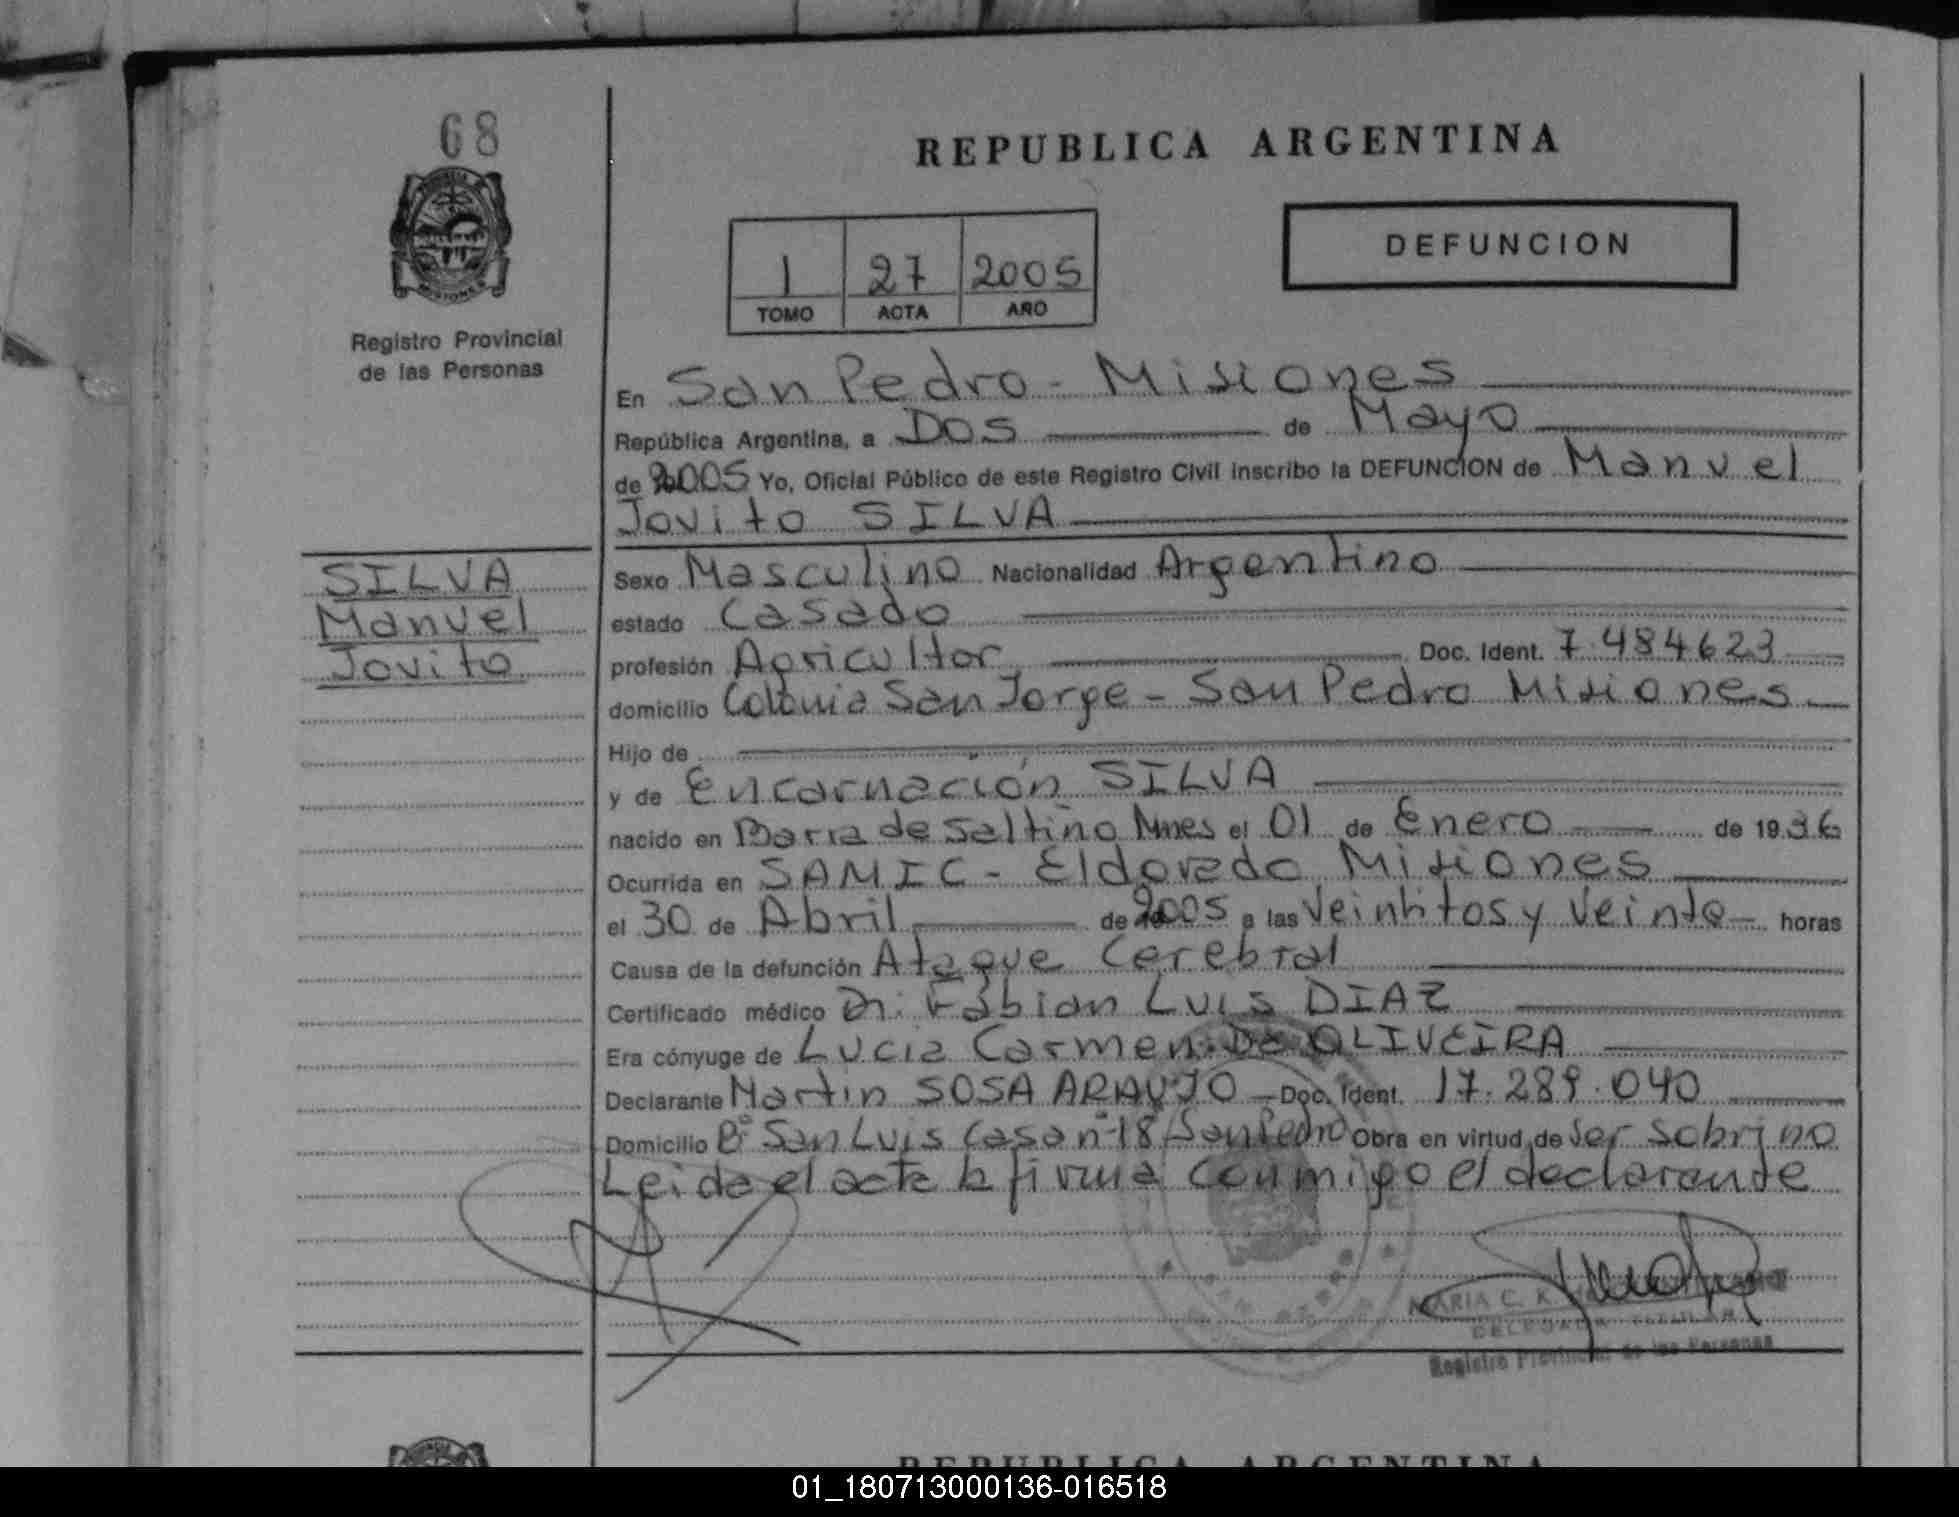 68
REPUBLICA ARGENTINA
DEFUNCION
1 27 2005
TOMO ACTA AÑO
Registro Provincial
de las Personas
En San Pedro - Misiones
República Argentina, a Dos de Mayo
de 2005 Yo, Oficial Público de este Registro Civil inscribo la DEFUNCION de Manuel
Jovito SILVA
SILVA
Manuel
Jovito
Sexo Masculino Nacionalidad Argentino
estado Casado
profesión Agricultor Doc. Ident. 7.484623
domicilio Colonia San Jorge - San Pedro Misiones
Hijo de
y de Encarnación SILVA
nacido en de Saltino Mnes el 01 de Enero de 1936
Ocurrida en SAMIC - Eldorado Misiones
el 30 de Abril de 2005 a las y Veinte horas
Causa de la defunción Ataque Cerebral
Certificado médico Dr. Fabian Luis DIAZ
Era cónyuge de Lucia Carmen De OLIVEIRA
Declarante Martin SOSA ARAUJO Doc. Ident. 17.289.040
Domicilio Bº San Luis Casa nº 18 San Pedro Obra en virtud de ser sobrino
Leida el acta la firma conmigo el declarante
MARIA C. K.
DELEGADA TITULAR
Registro Provincial de las Personas
REPUBLICA ARGENTINA
01_180713000136-016518